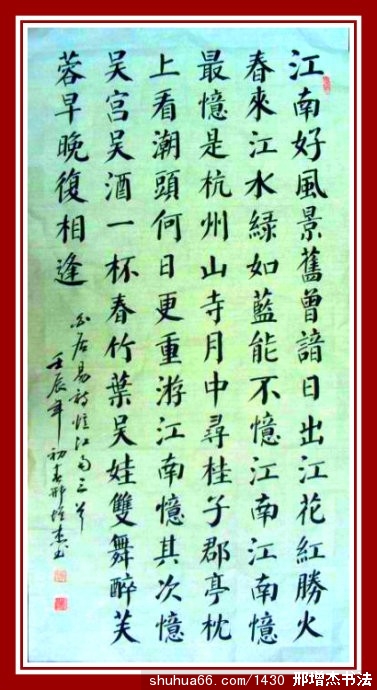 江南好風景舊曾諳日出江花紅勝火
春來江水綠如藍能不憶江南江南憶
最憶是杭州山寺月中尋桂子郡亭枕
上看潮頭何日更重游江南憶其次憶
吳宮吳酒一杯春竹葉吳娃雙舞醉芙
蓉早晚復相逢
白居易詩憶江南三首
壬辰年初春邢增杰书
shuhua66.com/1430 邢增杰书法